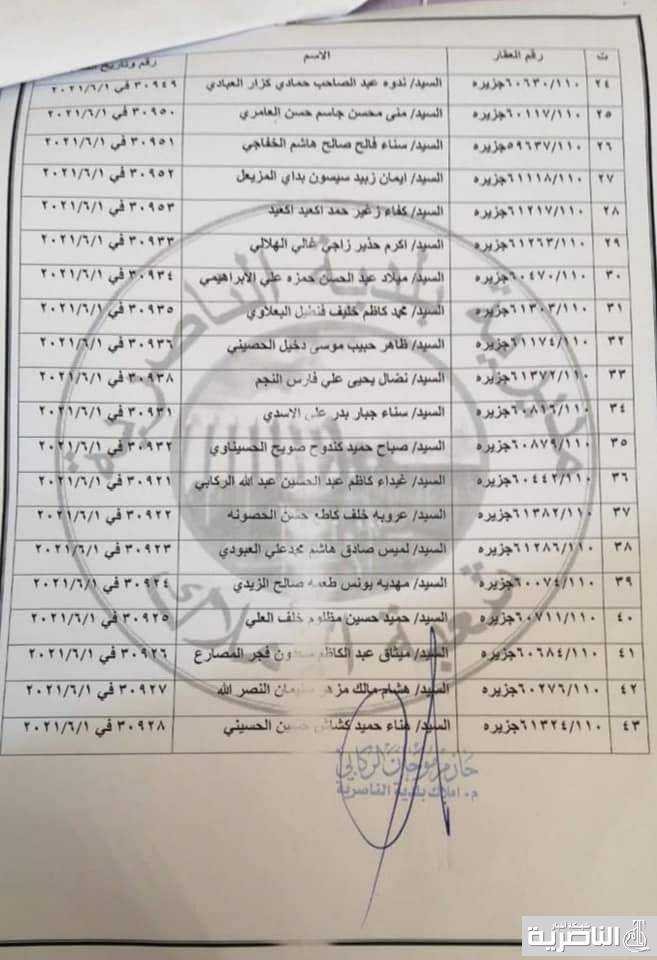 ت رقم العقار الاسم رقم وتاريخ
٢٤ ٦٠٦٣٠/١١٠جزيره السيد/ ندوه عبد الصاحب حمادي كزار العبادي ٣٠٩٤٩ في ٢٠٢١/٦/١
٢٥ ٦٠١١٧/١١٠جزيره السيد/ منى محسن جاسم حسن العامري ٣٠٩٥٠ في ٢٠٢١/٦/١
٢٦ ٥٩٦٣٧/١١٠جزيره السيد/ سناء فالح صالح هاشم الخفاجي ٣٠٩٥١ في ٢٠٢١/٦/١
٢٧ ٦١١١٨/١١٠جزيره السيد/ ايمان زبيد سيسون بداي المزيعل ٣٠٩٥٢ في ٢٠٢١/٦/١
٢٨ ٦١٢١٧/١١٠جزيره السيد/ كفاء زغير حمد اكعيد اكعيد ٣٠٩٥٣ في ٢٠٢١/٦/١
٢٩ ٦١٢٦٣/١١٠جزيره السيد/ اكرم حذير زاجي غالي الهلالي ٣٠٩٣٣ في ٢٠٢١/٦/١
٣٠ ٦٠٤٧٠/١١٠جزيره السيد/ ميلاد عبد الحسن حمزه علي الابراهيمي ٣٠٩٣٤ في ٢٠٢١/٦/١
٣١ ٦١٣٠٣/١١٠جزيره السيد/ محمد كاظم خليف فنطيل البعلاوي ٣٠٩٣٥ في ٢٠٢١/٦/١
٣٢ ٦١١٧٤/١١٠جزيره السيد/ ظاهر حبيب موسى دخيل الحصيني ٣٠٩٣٦ في ٢٠٢١/٦/١
٣٣ ٦١٣٧٢/١١٠جزيره السيد/ نضال يحيى علي فارس النجم ٣٠٩٣٨ في ٢٠٢١/٦/١
٣٤ ٦٠٨١٦/١١٠جزيره السيد/ سناء جبار بدر علي الاسدي ٣٠٩٣١ في ٢٠٢١/٦/١
٣٥ ٦٠٨٧٩/١١٠جزيره السيد/ صباح حميد كندوح صويح الحسيناوي ٣٠٩٣٢ في ٢٠٢١/٦/١
٣٦ ٦٠٤٤٢/١١٠جزيره السيد/ غيداء كاظم عبد الحسين عبد الله الركابي ٣٠٩٢١ في ٢٠٢١/٦/١
٣٧ ٦١٣٨٢/١١٠جزيره السيد/ عروبه خلف كاطع حسن الحصونه ٣٠٩٢٢ في ٢٠٢١/٦/١
٣٨ ٦١٢٨٦/١١٠جزيره السيد/ لميس صادق هاشم محمدعلي العبودي ٣٠٩٢٣ في ٢٠٢١/٦/١
٣٩ ٦٠٠٧٤/١١٠جزيره السيد/ مهديه يونس طعمه صالح الزيدي ٣٠٩٢٤ في ٢٠٢١/٦/١
٤٠ ٦٠٧١١/١١٠جزيره السيد/ حميد حسين مظلوم خلف العلي ٣٠٩٢٥ في ٢٠٢١/٦/١
٤١ ٦٠٦٨٤/١١٠جزيره السيد/ ميثاق عبد الكاظم سعدون فجر المصارع ٣٠٩٢٦ في ٢٠٢١/٦/١
٤٢ ٦٠٢٧٦/١١٠جزيره السيد/ هشام مالك مزهر سليمان النصر الله ٣٠٩٢٧ في ٢٠٢١/٦/١
٤٣ ٦١٣٢٤/١١٠جزيره السيد/ هناء حميد كشاش حسين الحسيني ٣٠٩٢٨ في ٢٠٢١/٦/١
مديرية بلدية الناصرية
شعبة الاملاك
حازم الركابي
م. املاك بلدية الناصرية
شبكة اخبار
الناصرية